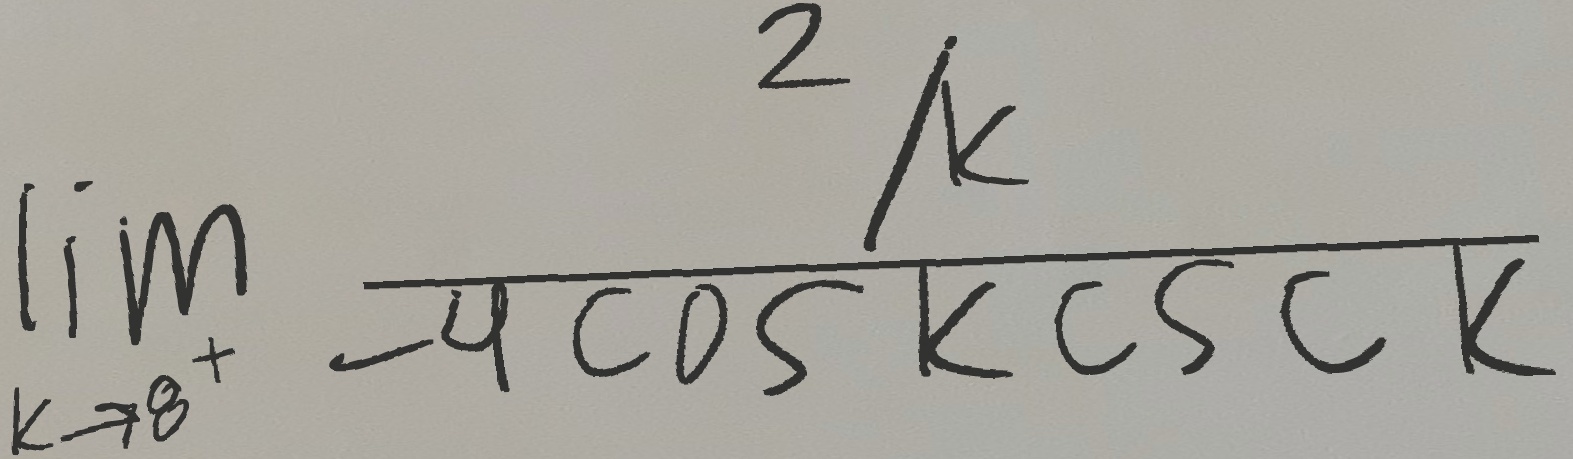 \lim_{k \to 8^+} \frac{2/k}{-4 \cos k \csc k}